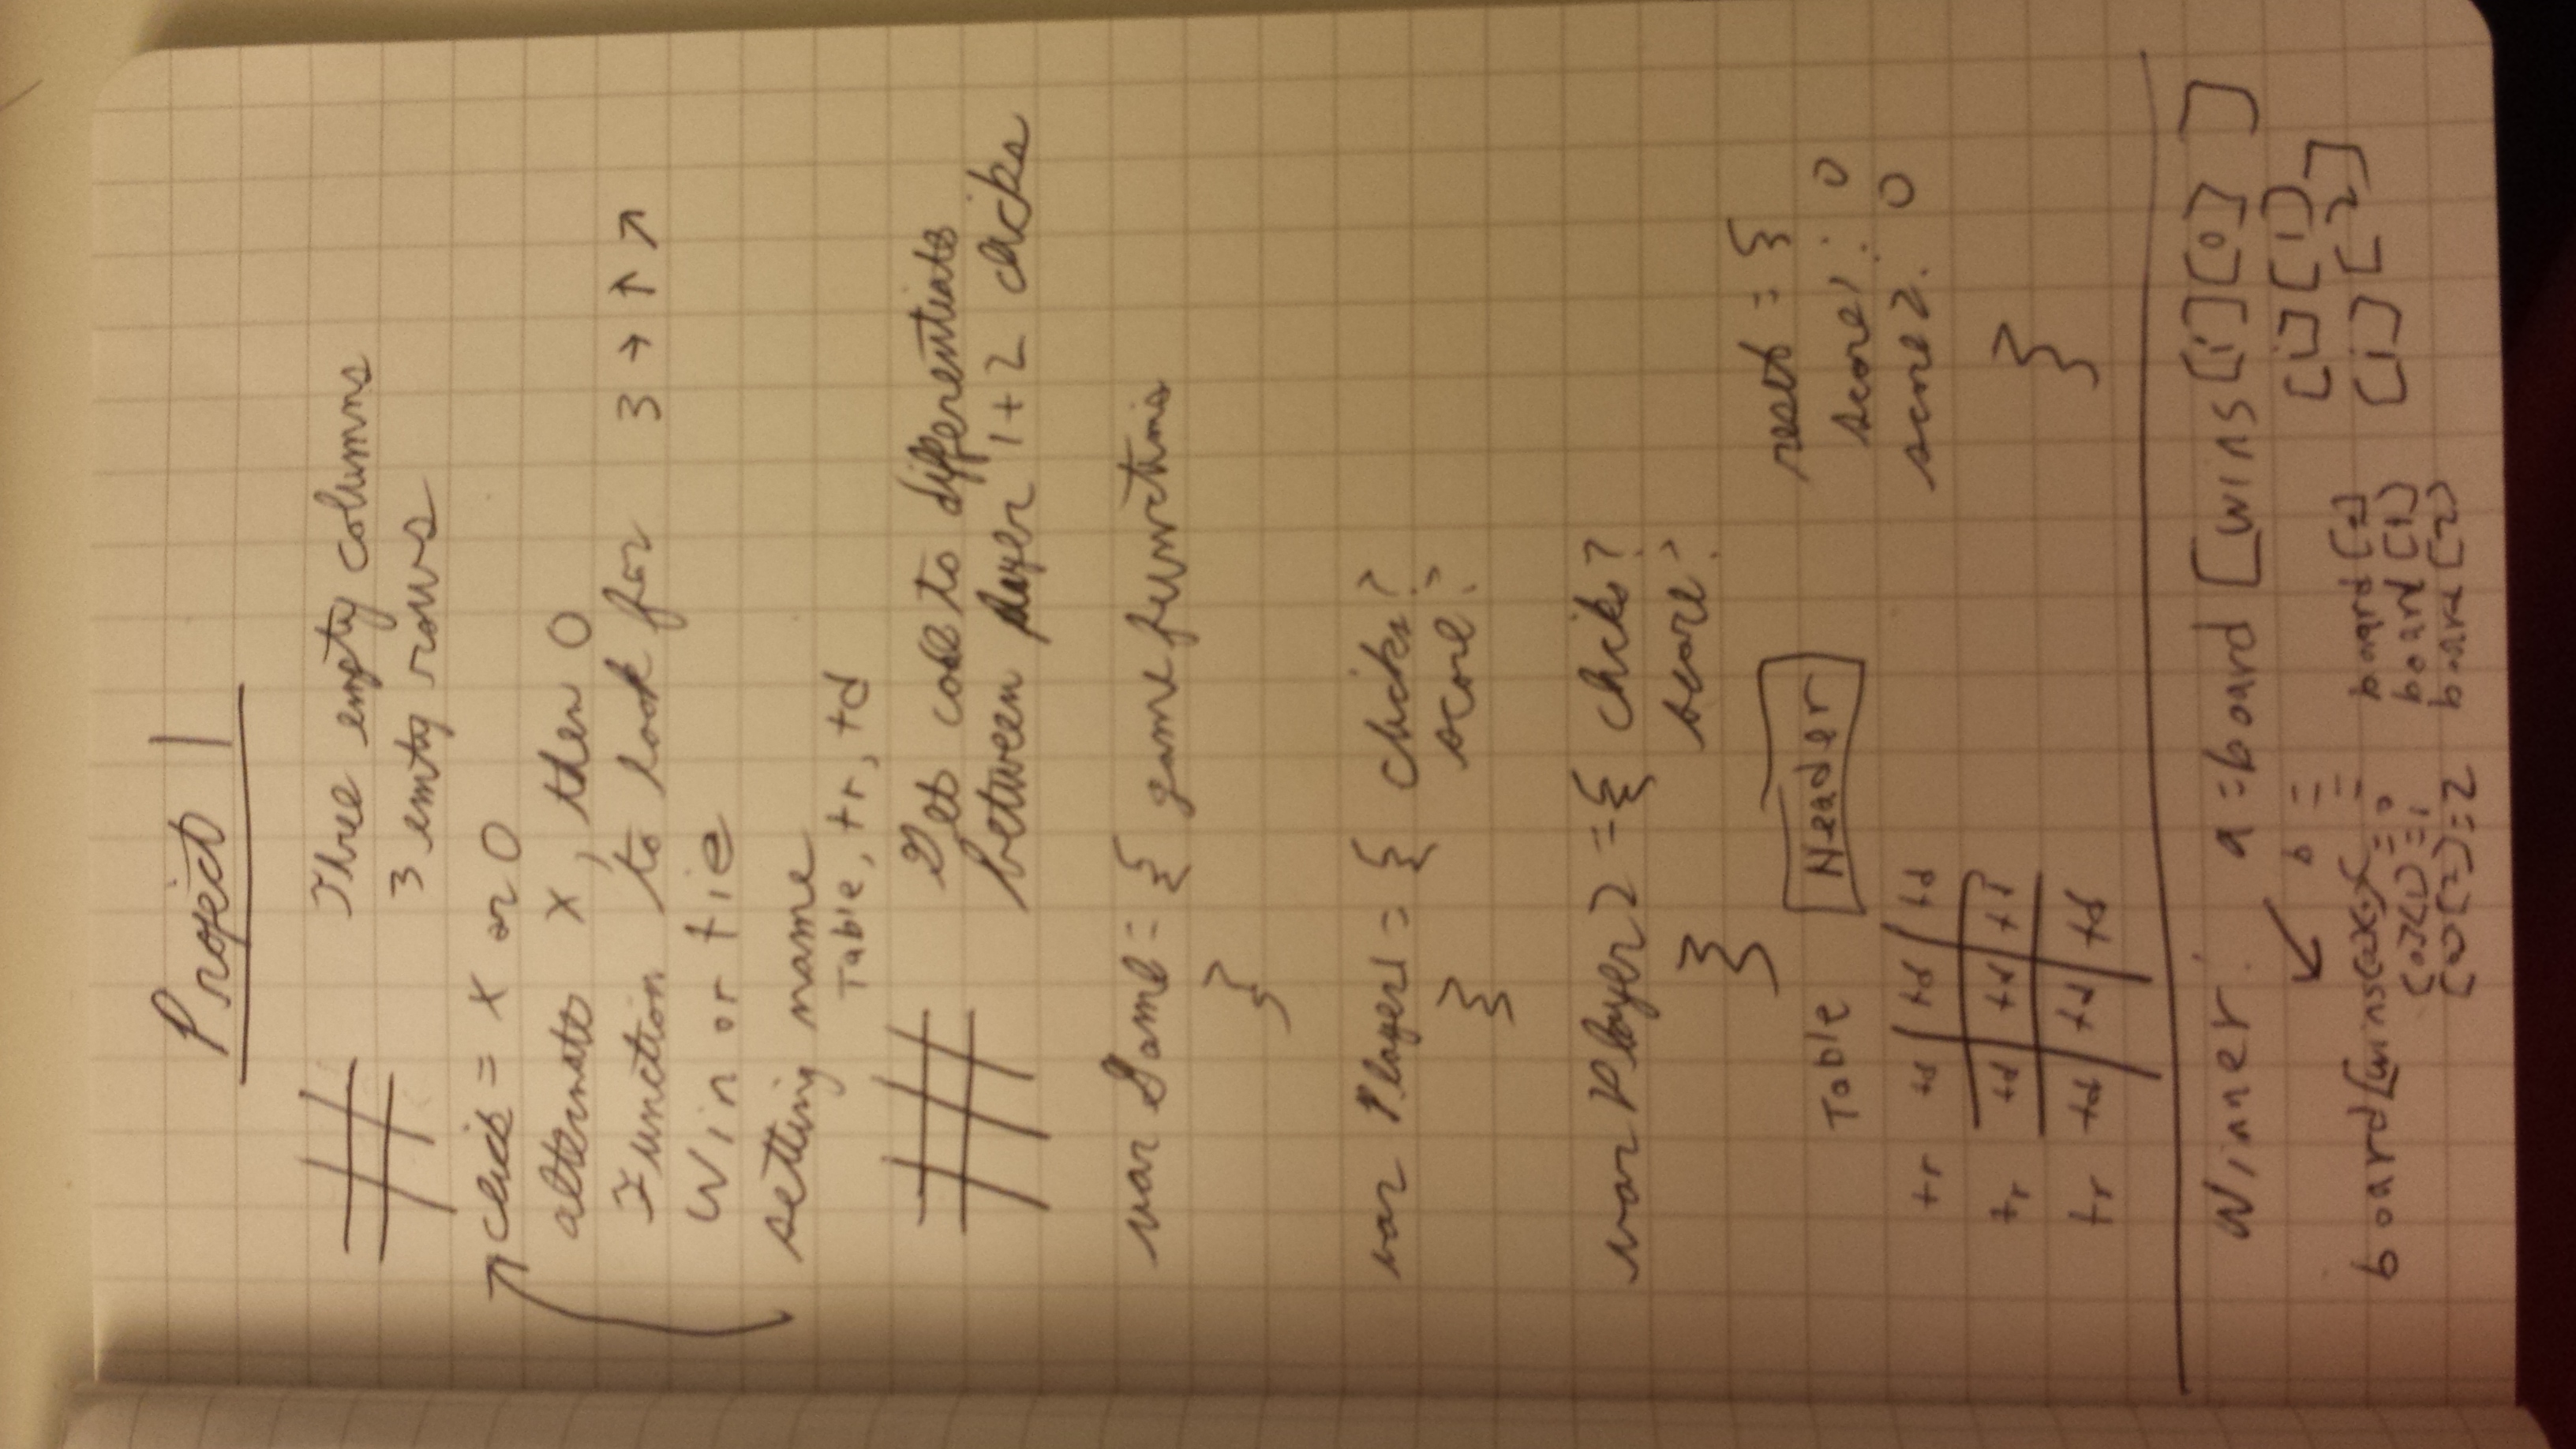 Project 1
Three empty columns
3 emty rows
click = X or O
alternate X, then O
Function to look for 3 → ↑ ↗
Win or tie
setting name
Table, tr, td
Get code to differentiate
between player 1+2 clicks
var Game = { game functions
}
var Player1 = { clicks?
score?
}
var Player2 = { clicks?
score?
}
Table Header
reset = {
score1: 0
score2: 0
}
tr td td td
tr td td td
tr td td td
Winner: a = board [wins[i][0] ]
b = [i][1]
= [i][2]]
board[wins[0][0] = 0 board[0]
[0][1] = 1 board[1]
[0][2] = 2 board[2]